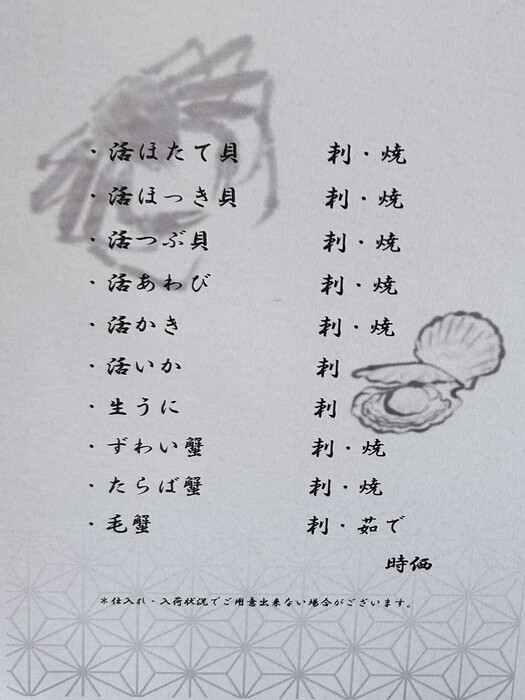 ・活ほたて貝 刺・焼
・活ほっき貝 刺・焼
・活つぶ貝 刺・焼
・活あわび 刺・焼
・活かき 刺・焼
・活いか 刺
・生うに 刺
・ずわい蟹 刺・焼
・たらば蟹 刺・焼
・毛蟹 刺・茹で
時価
＊仕入れ・入荷状況でご用意出来ない場合がございます。